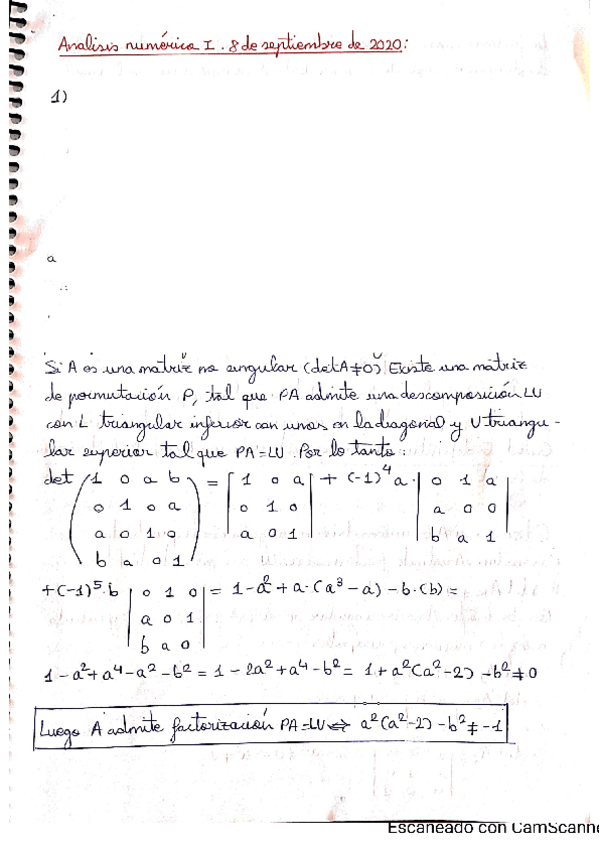 Analisis numérico I. 8 de septiembre de 2020:
1)
a
Si A es una matriz no singular (detA≠0) Existe una matriz
de permutación P, tal que PA admite una descomposición LU
con L triangular inferior con unos en la diagonal y U triangu-
lar superior tal que PA=LU. Por lo tanto:
det (1 0 a b = | 1 0 a | + (-1)^4 a · | 0 1 a |
0 1 0 a | 0 1 0 | | a 0 0 |
a 0 1 0 | a 0 1 | | b a 1 |
b a 0 1)
+(-1)^5·b | 0 1 0 | = 1-a^2+a·(a^3-a)-b·(b)=
| a 0 1 |
| b a 0 |
1-a^2+a^4-a^2-b^2=1-2a^2+a^4-b^2=1+a^2(a^2-2)-b^2≠0
Luego A admite factorización PA=LU⇔ a^2(a^2-2)-b^2≠-1
Escaneado con CamScanne